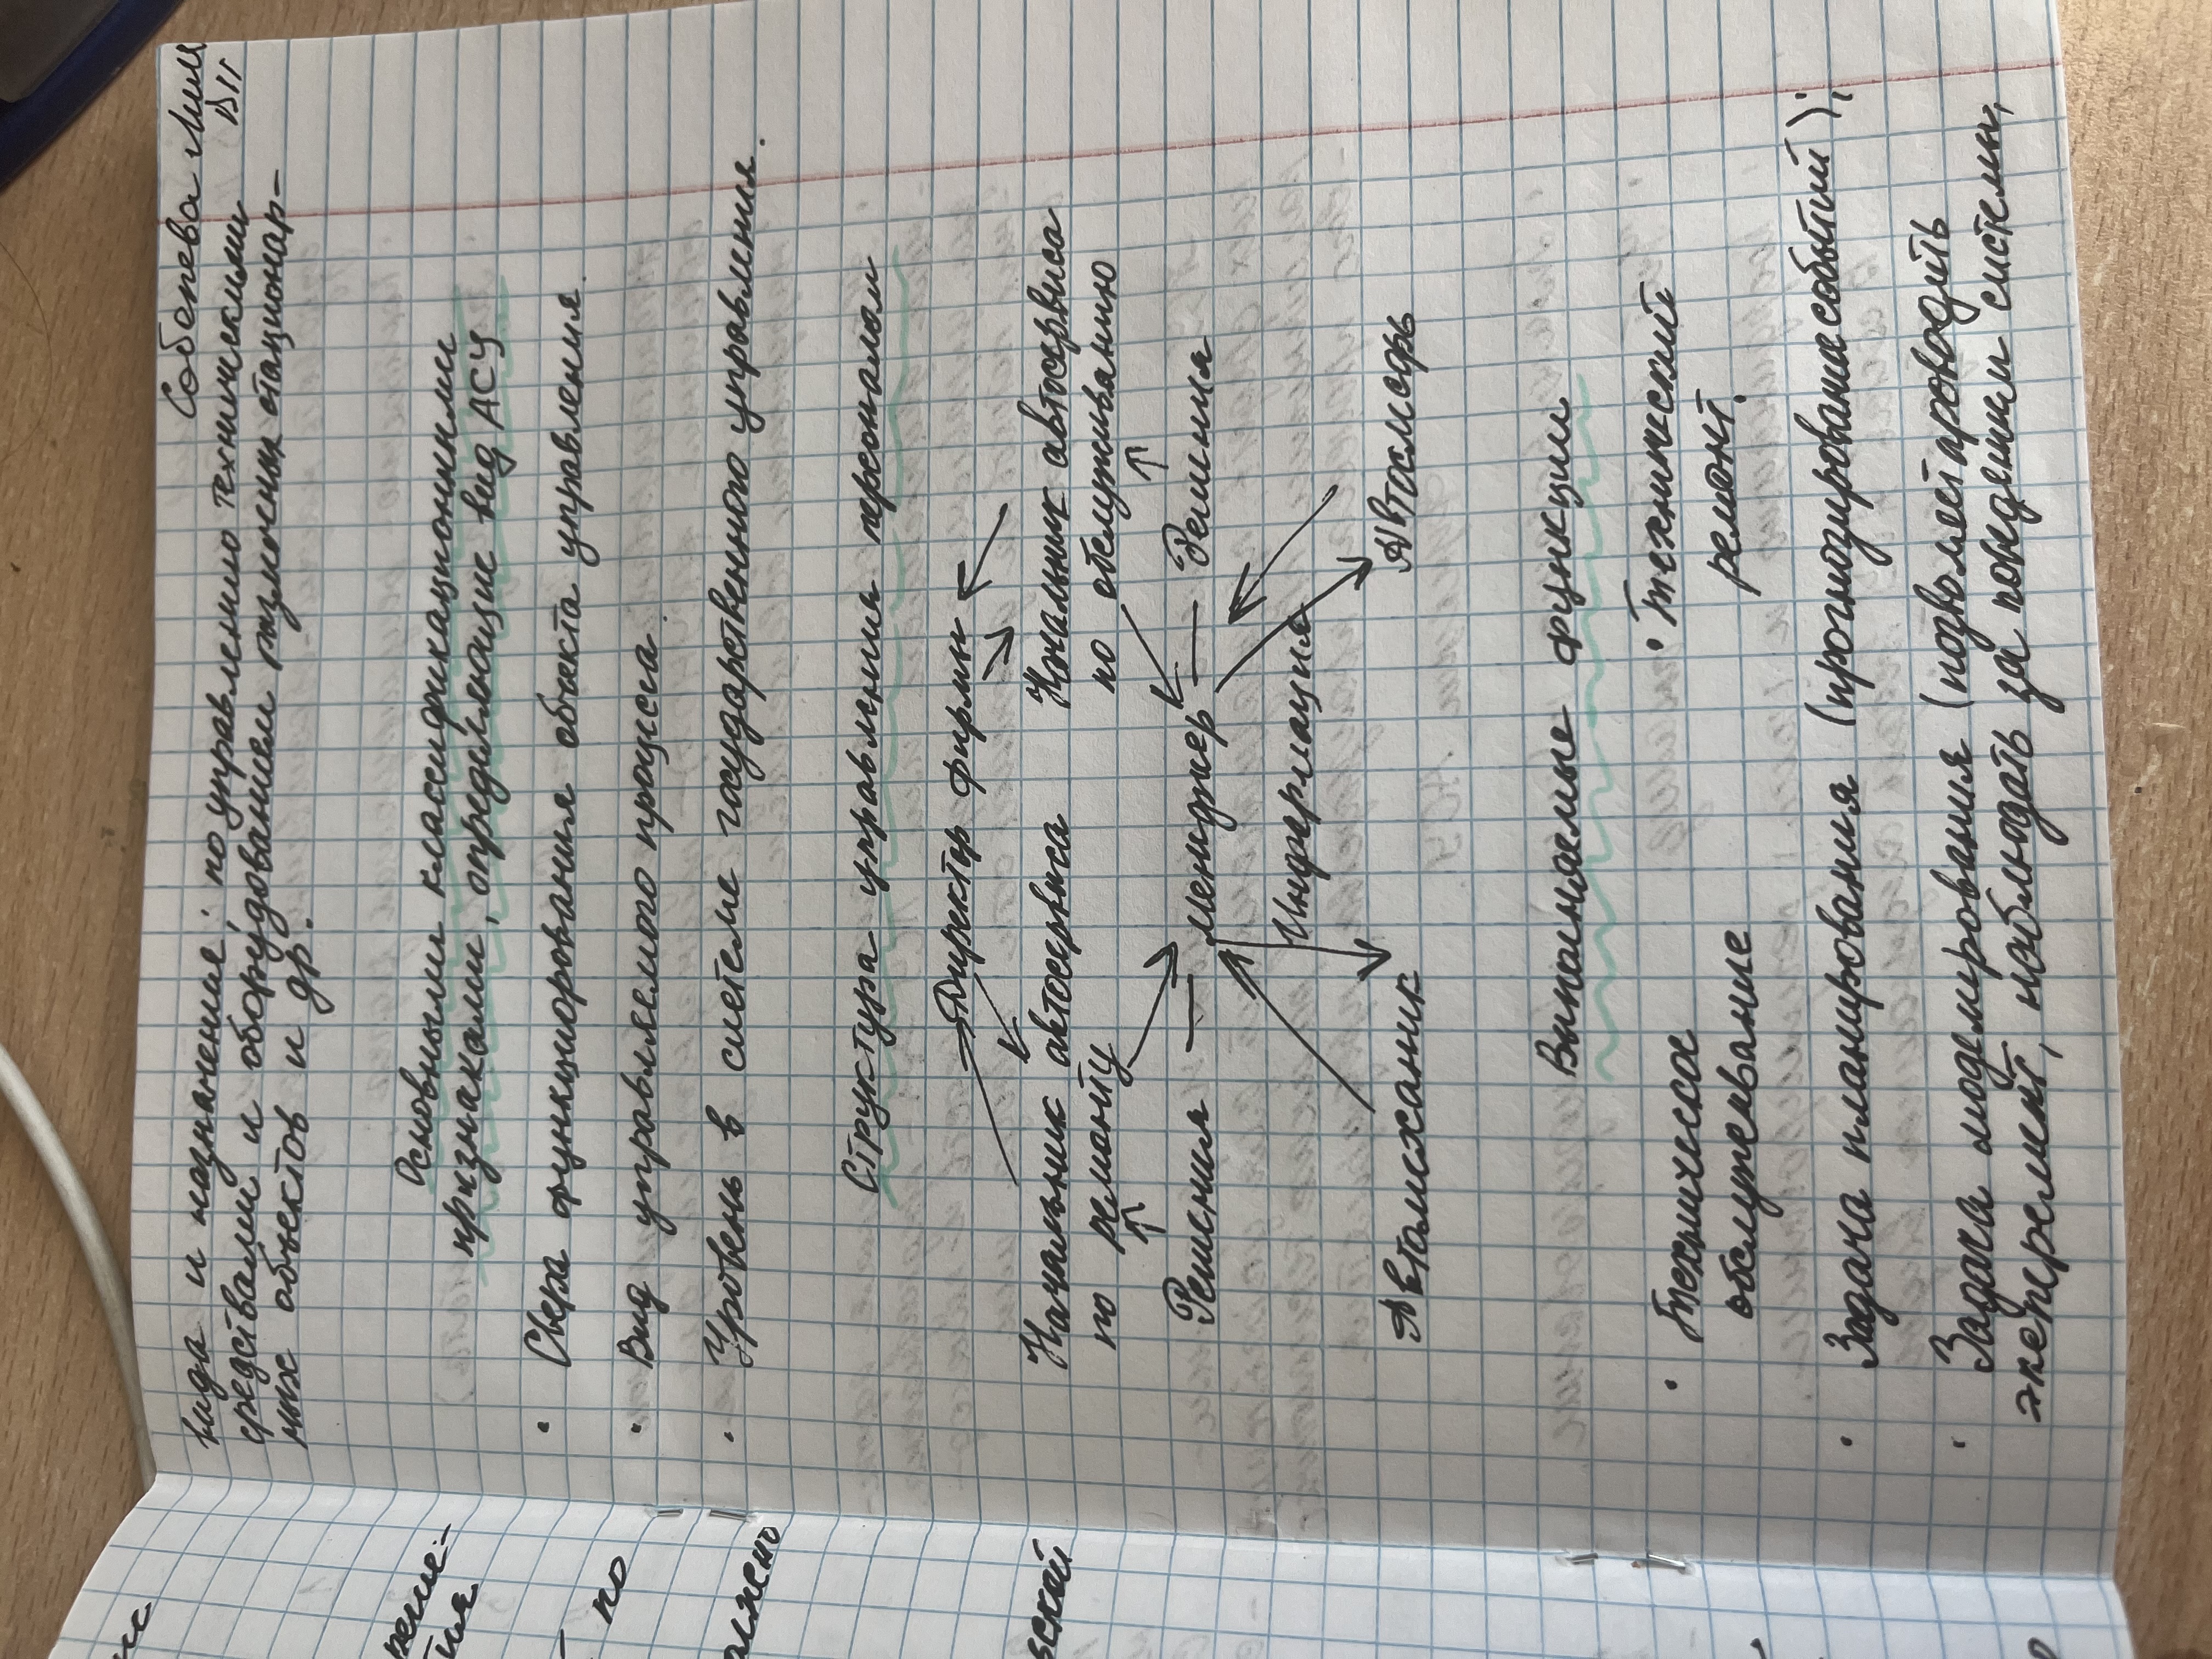 Соболева Лилия
ДП
вида и назначение: по управлению техническими
средствами и оборудованием различных стационар-
ных объектов и др.
Основными классификационными
признаками, определяющие вид АСУ
· Сфера функционирования объекта управления
· Вид управляемого процесса
· Уровень в системе государственного управления.
Структура управления персоналом
Директор фирмы
Начальник автосервиса Начальник автосервиса
по ремонту по обслуживанию
Решения — менеджер — Решения
Информация
Автомеханик Автослесарь
Выполняемые функции
· Техническое · Технический
обслуживание ремонт.
· Задача планирования (прогнозирование событий);
· Задача моделирования (позволяет проводить
эксперемент, наблюдать за поведением системы,
по